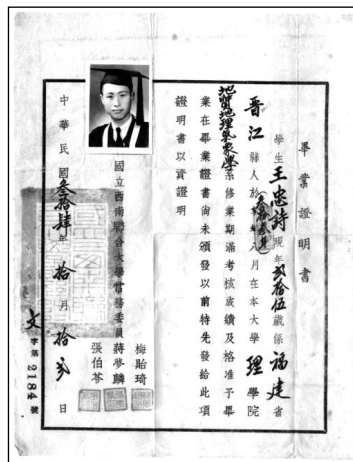 畢業證明書
學生王忠詩現年貳拾伍歲係福建省
晉江縣人於本年八月在本大學理學院
(叁拾叁年)
地質地理氣象學系修業期滿考核成績及格准予畢
業在畢業證書尚未頒發以前特先發給此項
證明書以資證明
梅貽琦
國立西南聯合大學常務委員蔣夢麟
張伯苓
中華民國叁拾肆年拾月拾貳日
文字第2184號